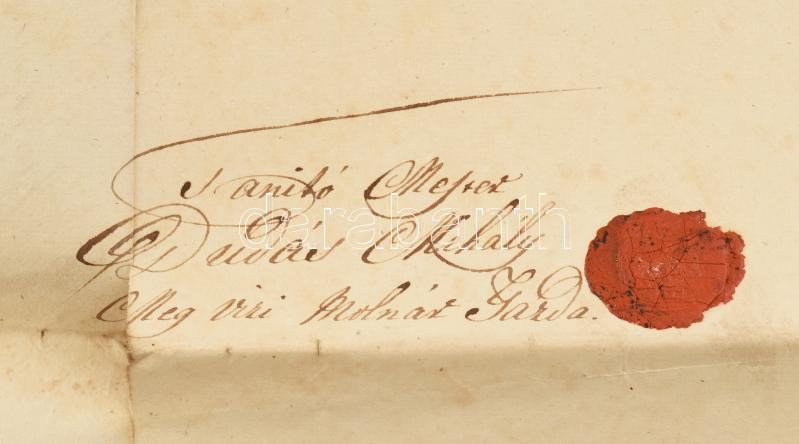 Tanitó Mester
Dudás Mihály
Meg viri Molnár Gazda.
darabanth